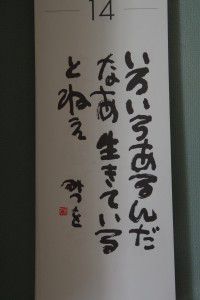 14
いろいろあるんだ
なあ生きている
とねえ
みつを